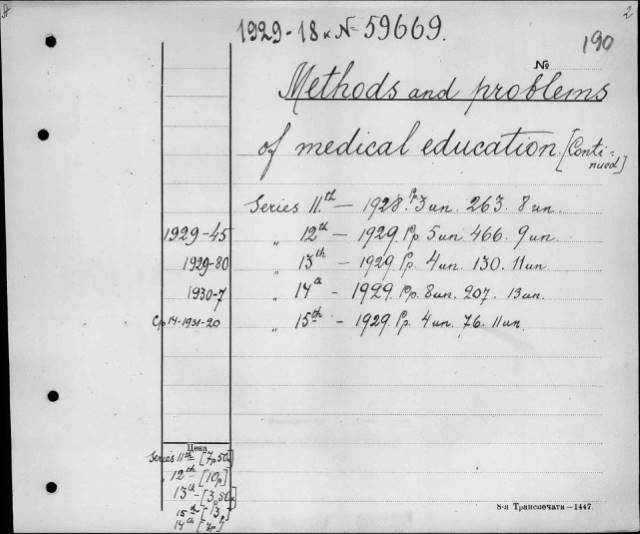 2
1929-18 к № 59669.
190
№
Methods and problems
of medical education [Continued]
Series 11th — 1928. Pp. 3 un. 263. 8 un.
1929-45 „ 12th — 1929. Pp. 5 un. 466. 9 un.
1929-80 „ 13th — 1929. Pp. 4 un. 130. 11 un.
1930-7 „ 14a — 1929. Pp. 8 un. 207. 13 un.
Ср 14-1931-20 „ 15th — 1929. Pp. 4 un. 76. 11 un.
Цена
Series 11th - [7p.
„ 12th - [10p]
13th - [3
15th [3p]
14a
8-я Транспечати—1447.